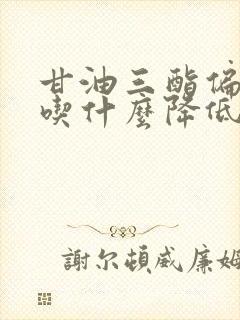 甘油三酯偏
喫什麽降低
謝尔頓威廉姆